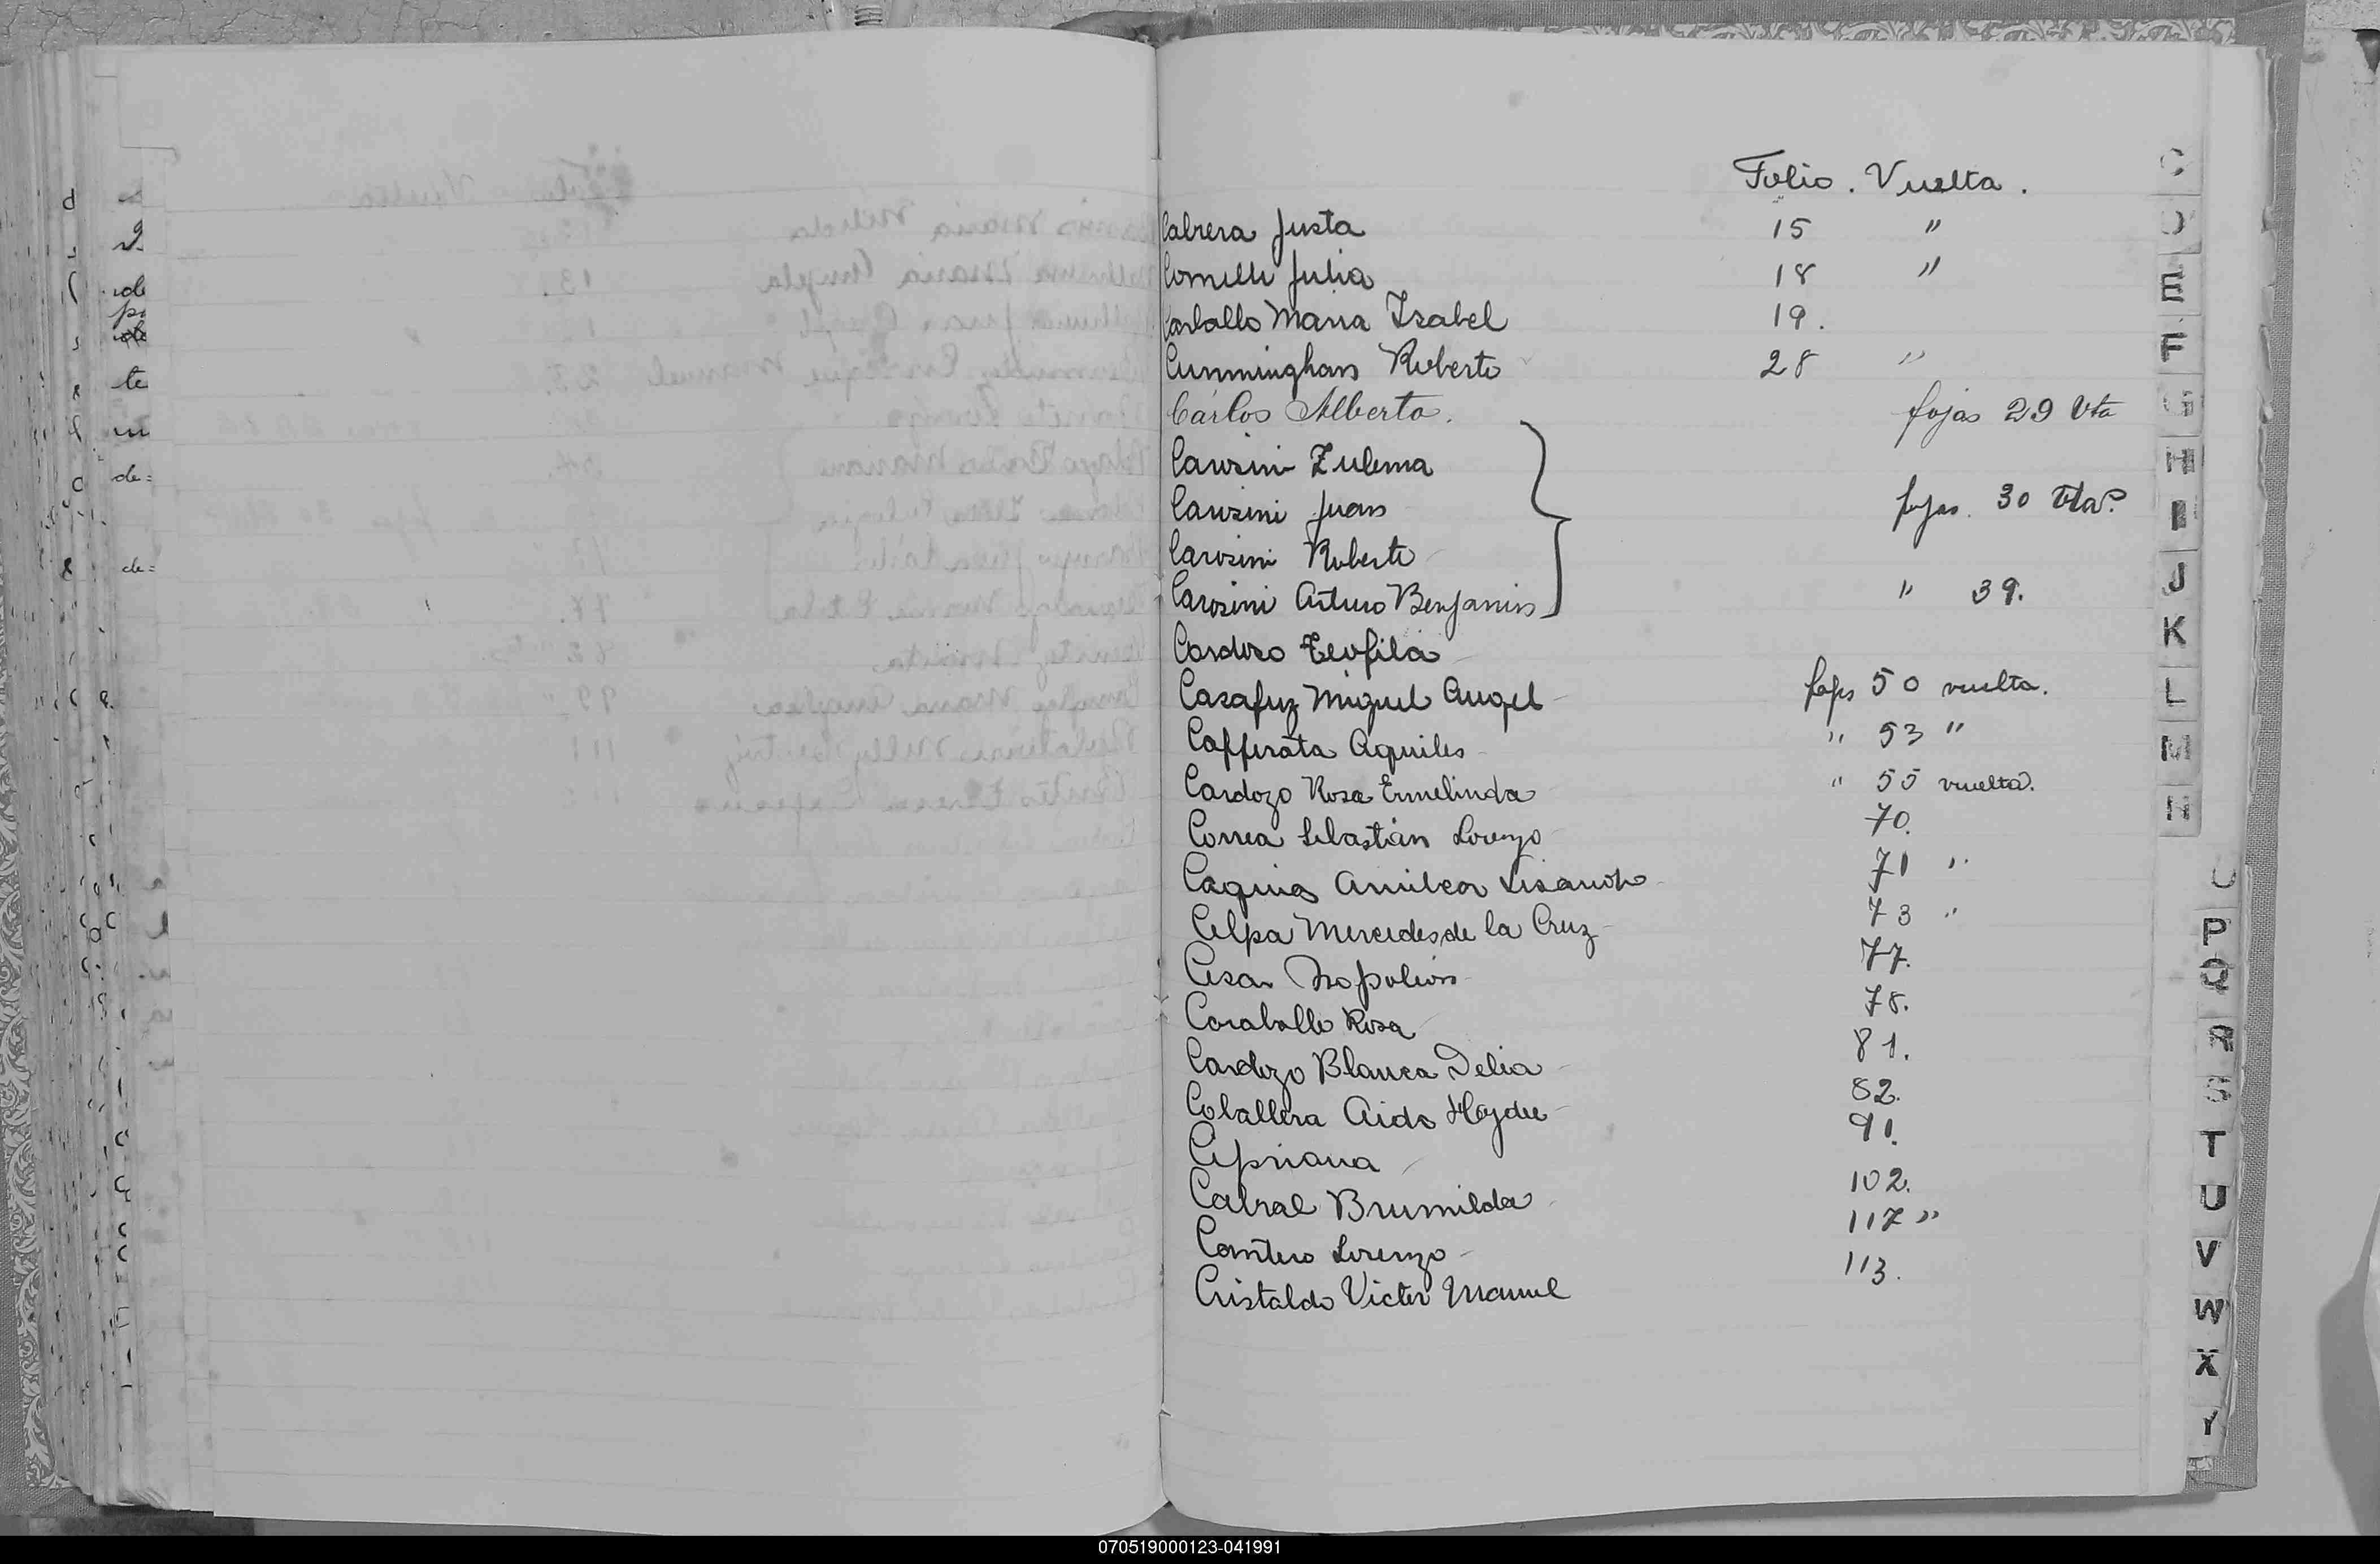 Folio. Vuelta.
Cabrera Justa 15 "
Comelli Julia 18 "
Carballo Maria Isabel 19.
Cunningham Roberto 28 "
Cárlos Alberto. fojas 29 Vta
Carosini Zulema
Carosini Juan fojas. 30 Vta.
Carosini Roberto
Carosini Arturo Benjamin
Cardozo Teofila " 39.
Casafuz Miguel Angel fojs 50 vuelta.
Cafferata Aquiles " 53 "
Cardozo Rosa Ermelinda " 55 vuelta.
Correa Sebastián Lorenzo 70.
Amilcar Lisandro 71 "
Celpa Mercedes de la Cruz 73 "
Cesar Napoleón 77.
Caraballo Rosa 78.
Cardozo Blanca Delia 81.
Caballera Aida Haydee 82.
Cipriana 91.
Cabral Brumilda 102.
Cantero Lorenzo 117 "
Cristaldo Victor Manuel 113.
C
D
E
F
G
H
I
J
K
L
M
N
P
Q
R
S
T
U
V
W
X
Y
070519000123-041991